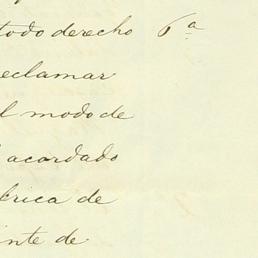 todo derecho 6ª
reclamar
l modo de
acordado
brica de
inte de